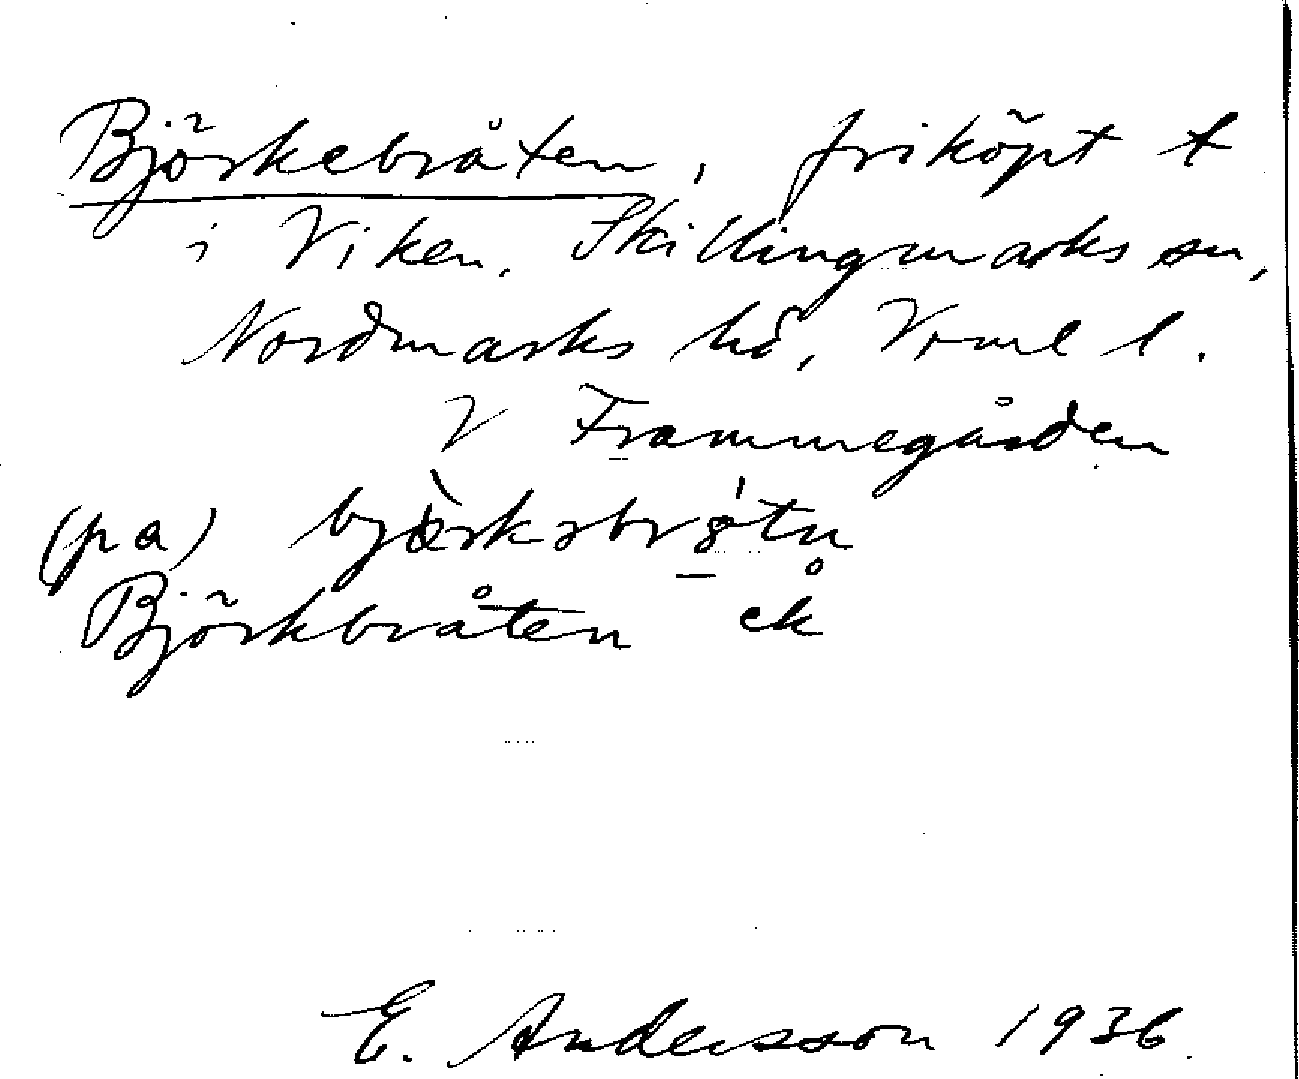 Björkebråten, friköpt t
i Viken, Skillingmarks sn,
Nordmarks hd, Vrml l.
V Frammegården
(pa) bjæ̀rkəbrɷ́tn
Björkbråten ek
E. Andersson 1936